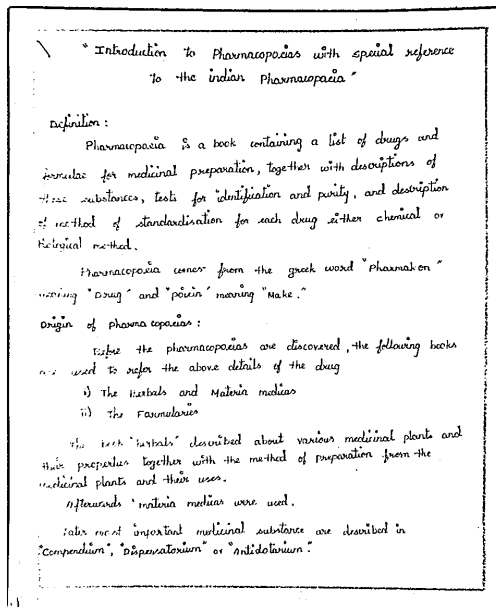 " Introduction to Pharmacopoeias with special reference
to the indian Pharmacopoeia "
Definition :
Pharmacopoeia is a book containing a list of drugs and
formulae for medicinal preparation, together with descriptions of
these substances, tests for identification and purity, and description
of method of standardisation for each drug either chemical or
biological method.
Pharmacopoeia comes from the greek word "Pharmakon"
meaning "Drug" and "poiein" meaning "Make."
Origin of pharmacopoeias :
Before the pharmacopoeias are discovered, the following books
are used to refer the above details of the drug
i) The Herbals and Materia medicas
ii) The Formularies
The book 'herbals' described about various medicinal plants and
their properties together with the method of preparation from the
medicinal plants and their uses.
Afterwards 'materia medicas were used.
Later most important medicinal substance are described in
"Compendium", "Dispensatorium" or "Antidotarium".